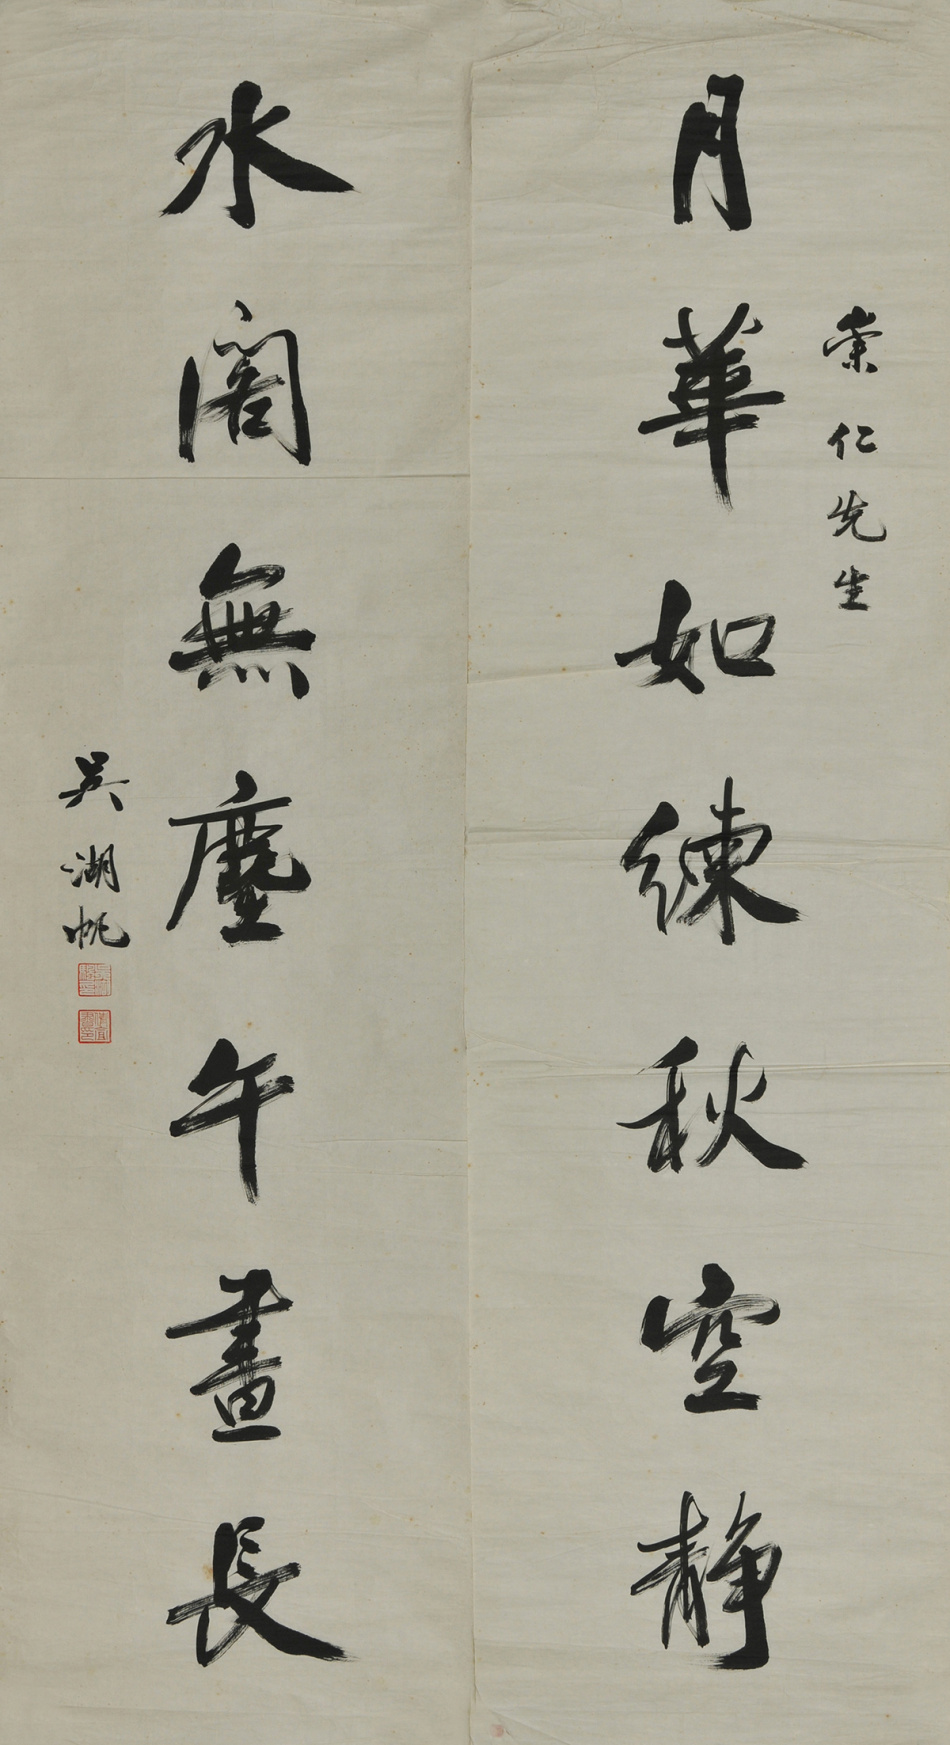 崇仁先生
月華如練秋空靜
水閣無塵午晝長
吳湖帆